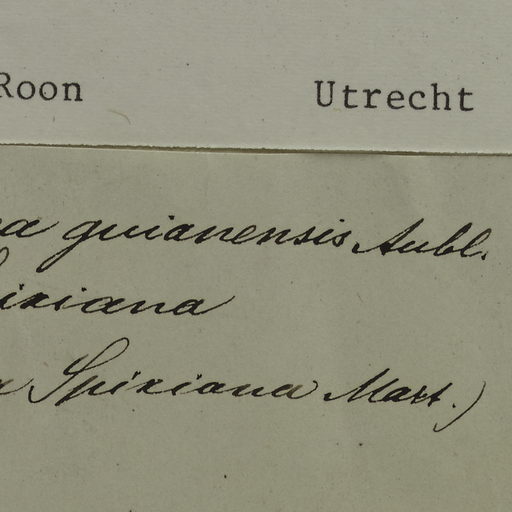 Roon Utrecht
a guianensis Aubl.
ixiana
a Spixiana Mart.)